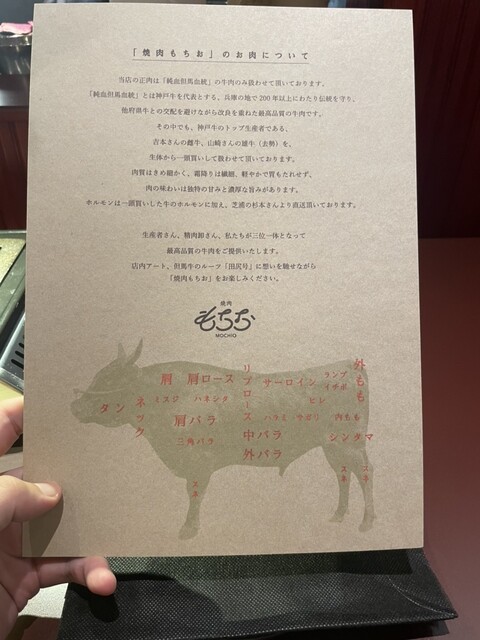 「焼肉もちお」のお肉について
当店の正肉は「純血但馬血統」の牛肉のみ扱わせて頂いております。
「純血但馬血統」とは神戸牛を代表とする、兵庫の地で200年以上にわたり伝統を守り、
他府県牛との交配を避けながら改良を重ねた最高品質の牛肉です。
その中でも、神戸牛のトップ生産者である、
吉本さんの雌牛、山崎さんの雄牛（去勢）を、
生体から一頭買いして扱わせて頂いております。
肉質はきめ細かく、霜降りは繊細、軽やかで胃もたれせず、
肉の味わいは独特の甘みと濃厚な旨みがあります。
ホルモンは一頭買いした牛のホルモンに加え、芝浦の杉本さんより直送頂いております。
生産者さん、精肉卸さん、私たちが三位一体となって
最高品質の牛肉をご提供いたします。
店内アート、但馬牛のルーツ「田尻号」に想いを馳せながら
「焼肉もちお」をお楽しみください。
焼肉
もちお
MOCHIO
タン
ネック
肩
肩ロース
ミスジ
ハネシタ
肩バラ
三角バラ
リブロース
中バラ
外バラ
サーロイン
ヒレ
ハラミ・サガリ
ランプ
イチボ
外もも
内もも
シンタマ
スネ
スネ
スネ